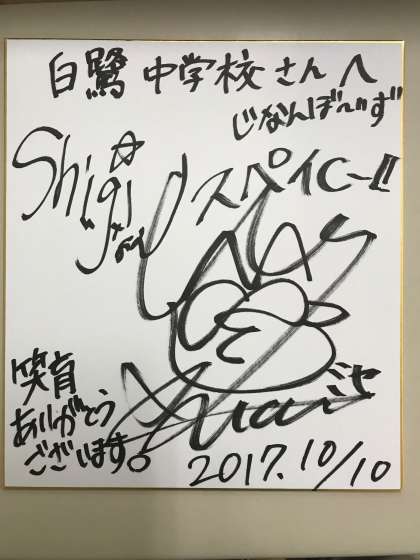 白鷺中学校さんへ
じなんぼ〜いず
Shigi
スペイC〜!!
ミヤ
笑育
ありがとう
ございます。
2017.10/10